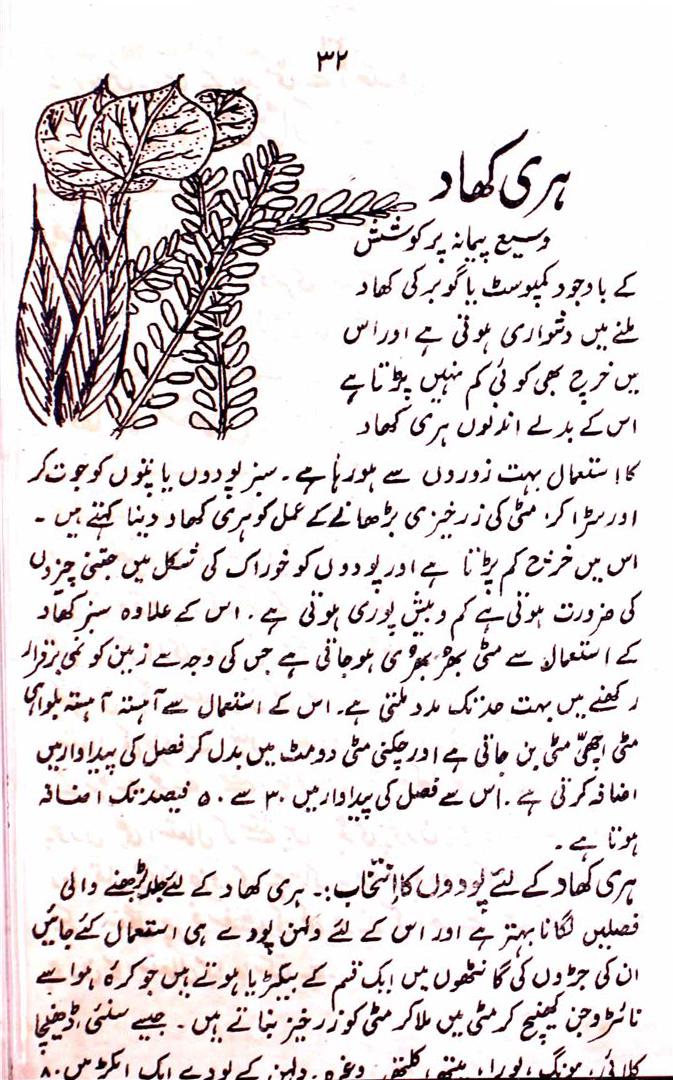 ۳۲
ہری کھاد
وسیع پیمانہ پر کوشش
کے باوجود کمپوسٹ یا گوبر کی کھاد
ملنے میں دشواری ہوتی ہے اور اس
میں خرچ بھی کوئی کم نہیں پڑتا ہے
اس کے بدلے ان دنوں ہری کھاد
کا استعمال بہت زوروں سے ہو رہا ہے۔ سبز پودوں یا پتوں کو جوت کر
اور سڑا کر مٹی کی زرخیزی بڑھانے کے عمل کو ہری کھاد دینا کہتے ہیں۔
اس میں خرچ کم پڑتا ہے اور پودوں کو خوراک کی شکل میں جتنی چیزوں
کی ضرورت ہوتی ہے کم و بیش پوری ہوتی ہے۔ اس کے علاوہ سبز کھاد
کے استعمال سے مٹی بھربھری ہو جاتی ہے جس کی وجہ سے زمین کو نمی برقرار
رکھنے میں بہت حد تک مدد ملتی ہے۔ اس کے استعمال سے آہستہ آہستہ بلواہی
مٹی اچھی مٹی بن جاتی ہے اور چکنی مٹی دومٹ میں بدل کر فصل کی پیداوار میں
اضافہ کرتی ہے۔ اس سے فصل کی پیداوار میں ۳۰ سے ۵۰ فیصد تک اضافہ
ہوتا ہے۔
ہری کھاد کے لئے پودوں کا انتخاب:۔ ہری کھاد کے لئے جلد بڑھنے والی
فصلیں لگانا بہتر ہے اور اس کے لئے دلہن پودے ہی استعمال کئے جائیں
ان کی جڑوں کی گانٹھوں میں ایک قسم کے بیکٹریا ہوتے ہیں جو کرۂ ہوا سے
نائٹروجن کھینچ کر مٹی میں ملا کر مٹی کو زرخیز بناتے ہیں۔ جیسے سنئی، ڈھنیچا
مونگ، وغیرہ۔ دلہن کے پودے ایک ایکڑ میں ۸۰